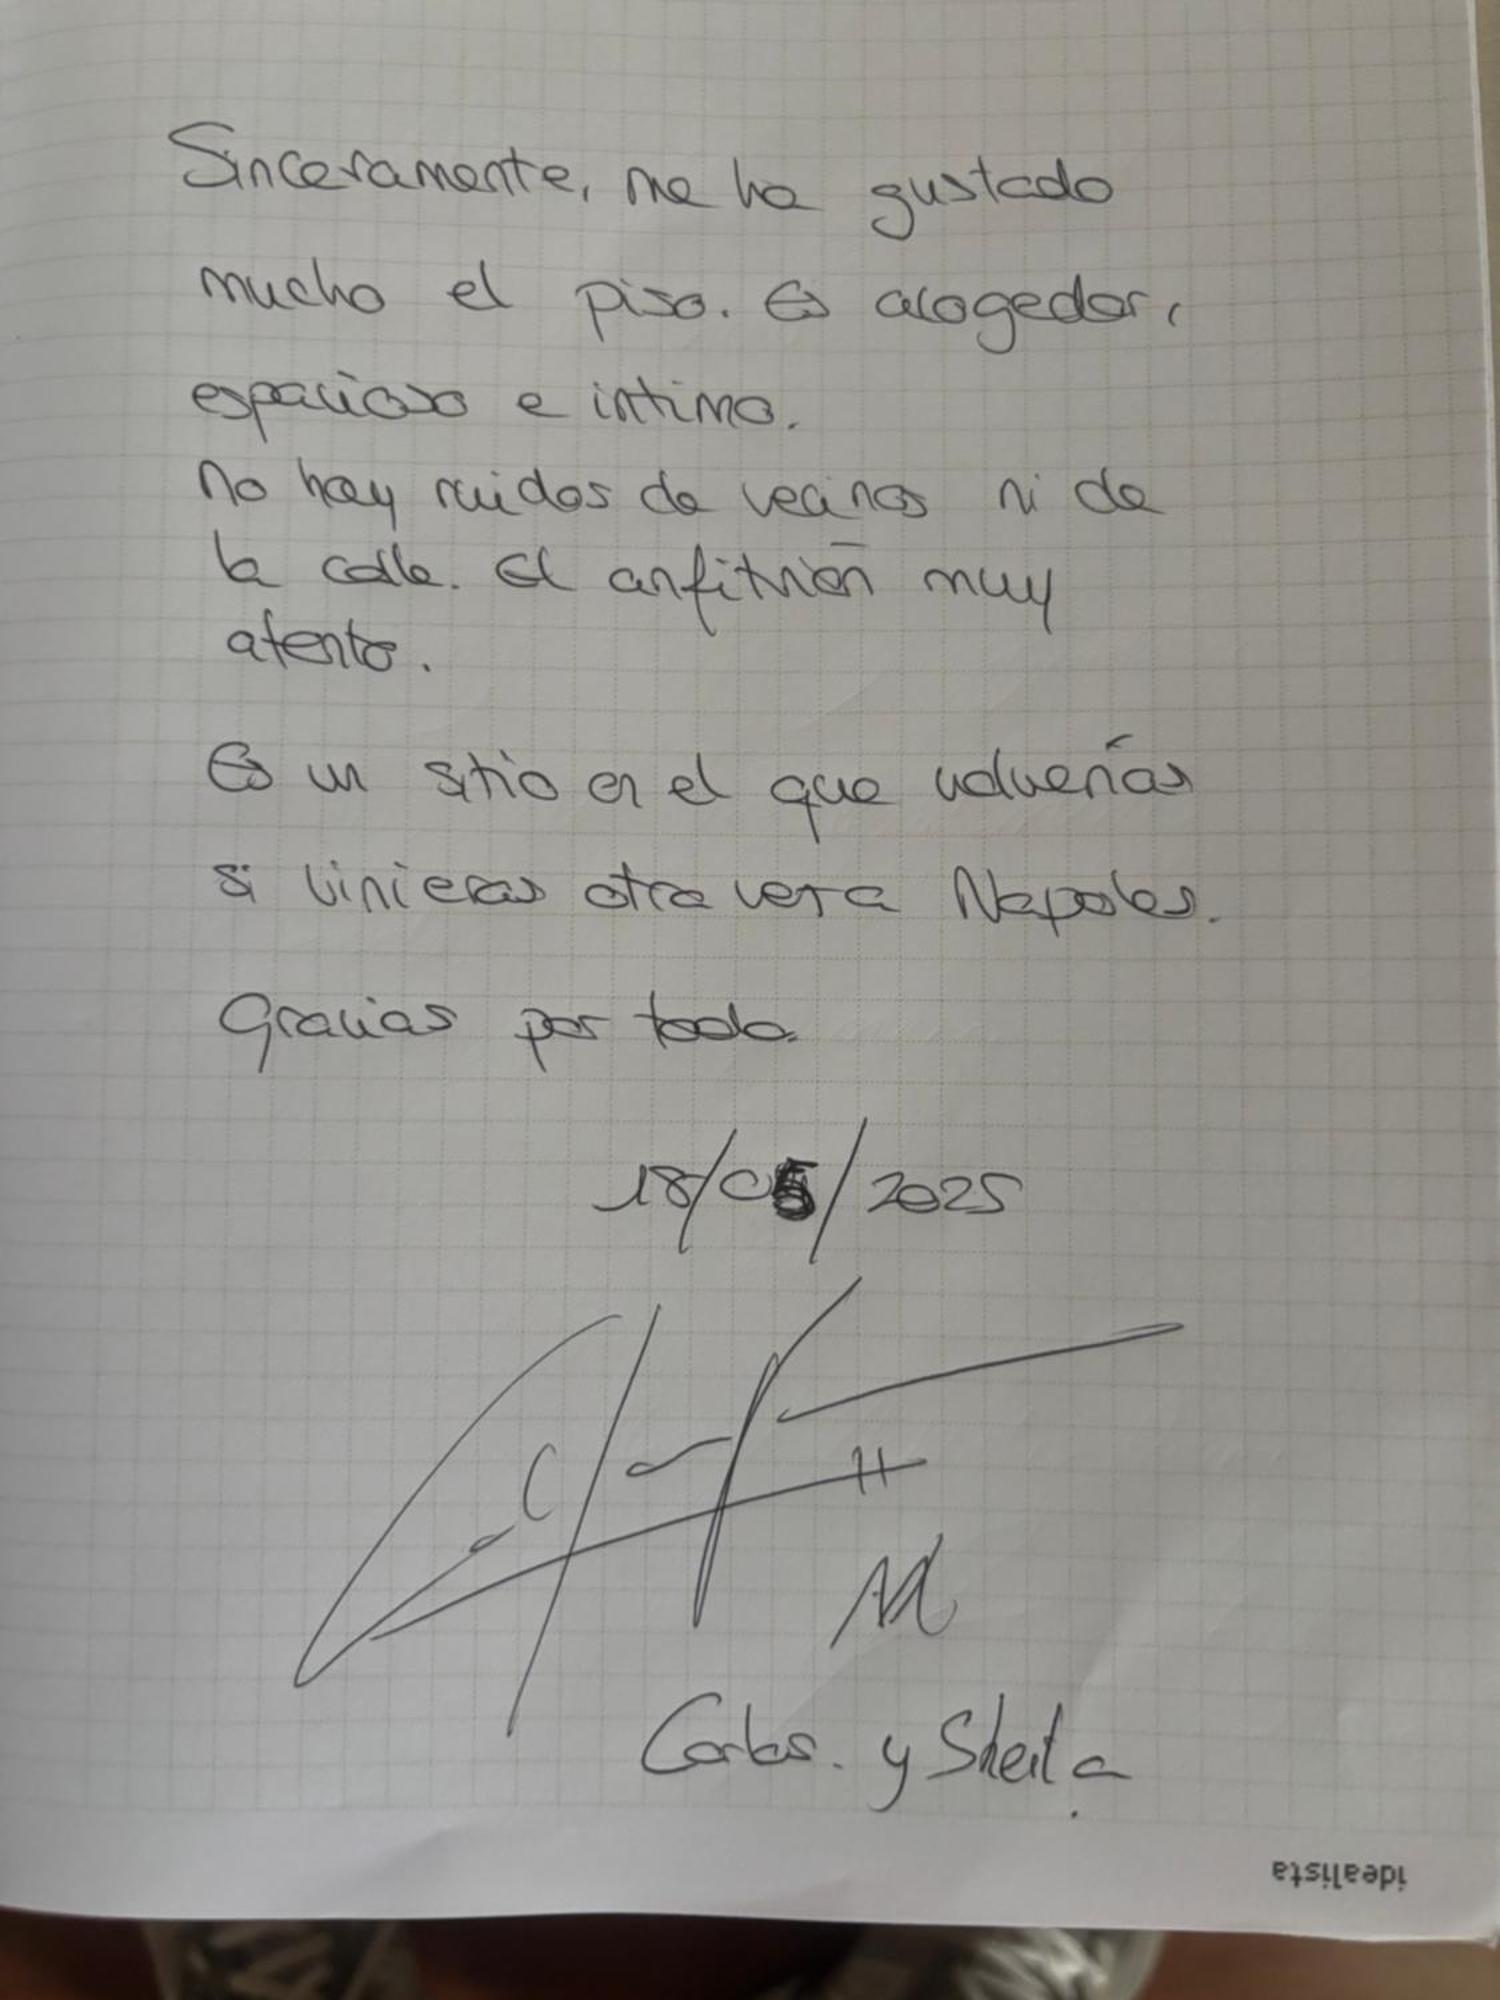 Sinceramente, me ha gustado
mucho el piso. Es acogedor,
espacioso e intimo.
No hay ruidos de vecinos ni de
la calle. El anfitrión muy
atento.
Es un sitio en el que volverías
si vinieras otra vez a Napoles.
Gracias por todo.
18/05/2025
Carlos. y Sheila
idealista